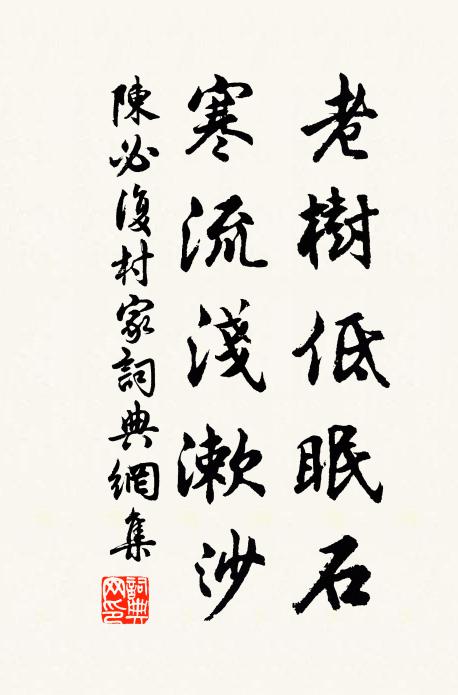 老樹低眠石
寒流淺漱沙
陳必復村家詞典網集
詞典網印